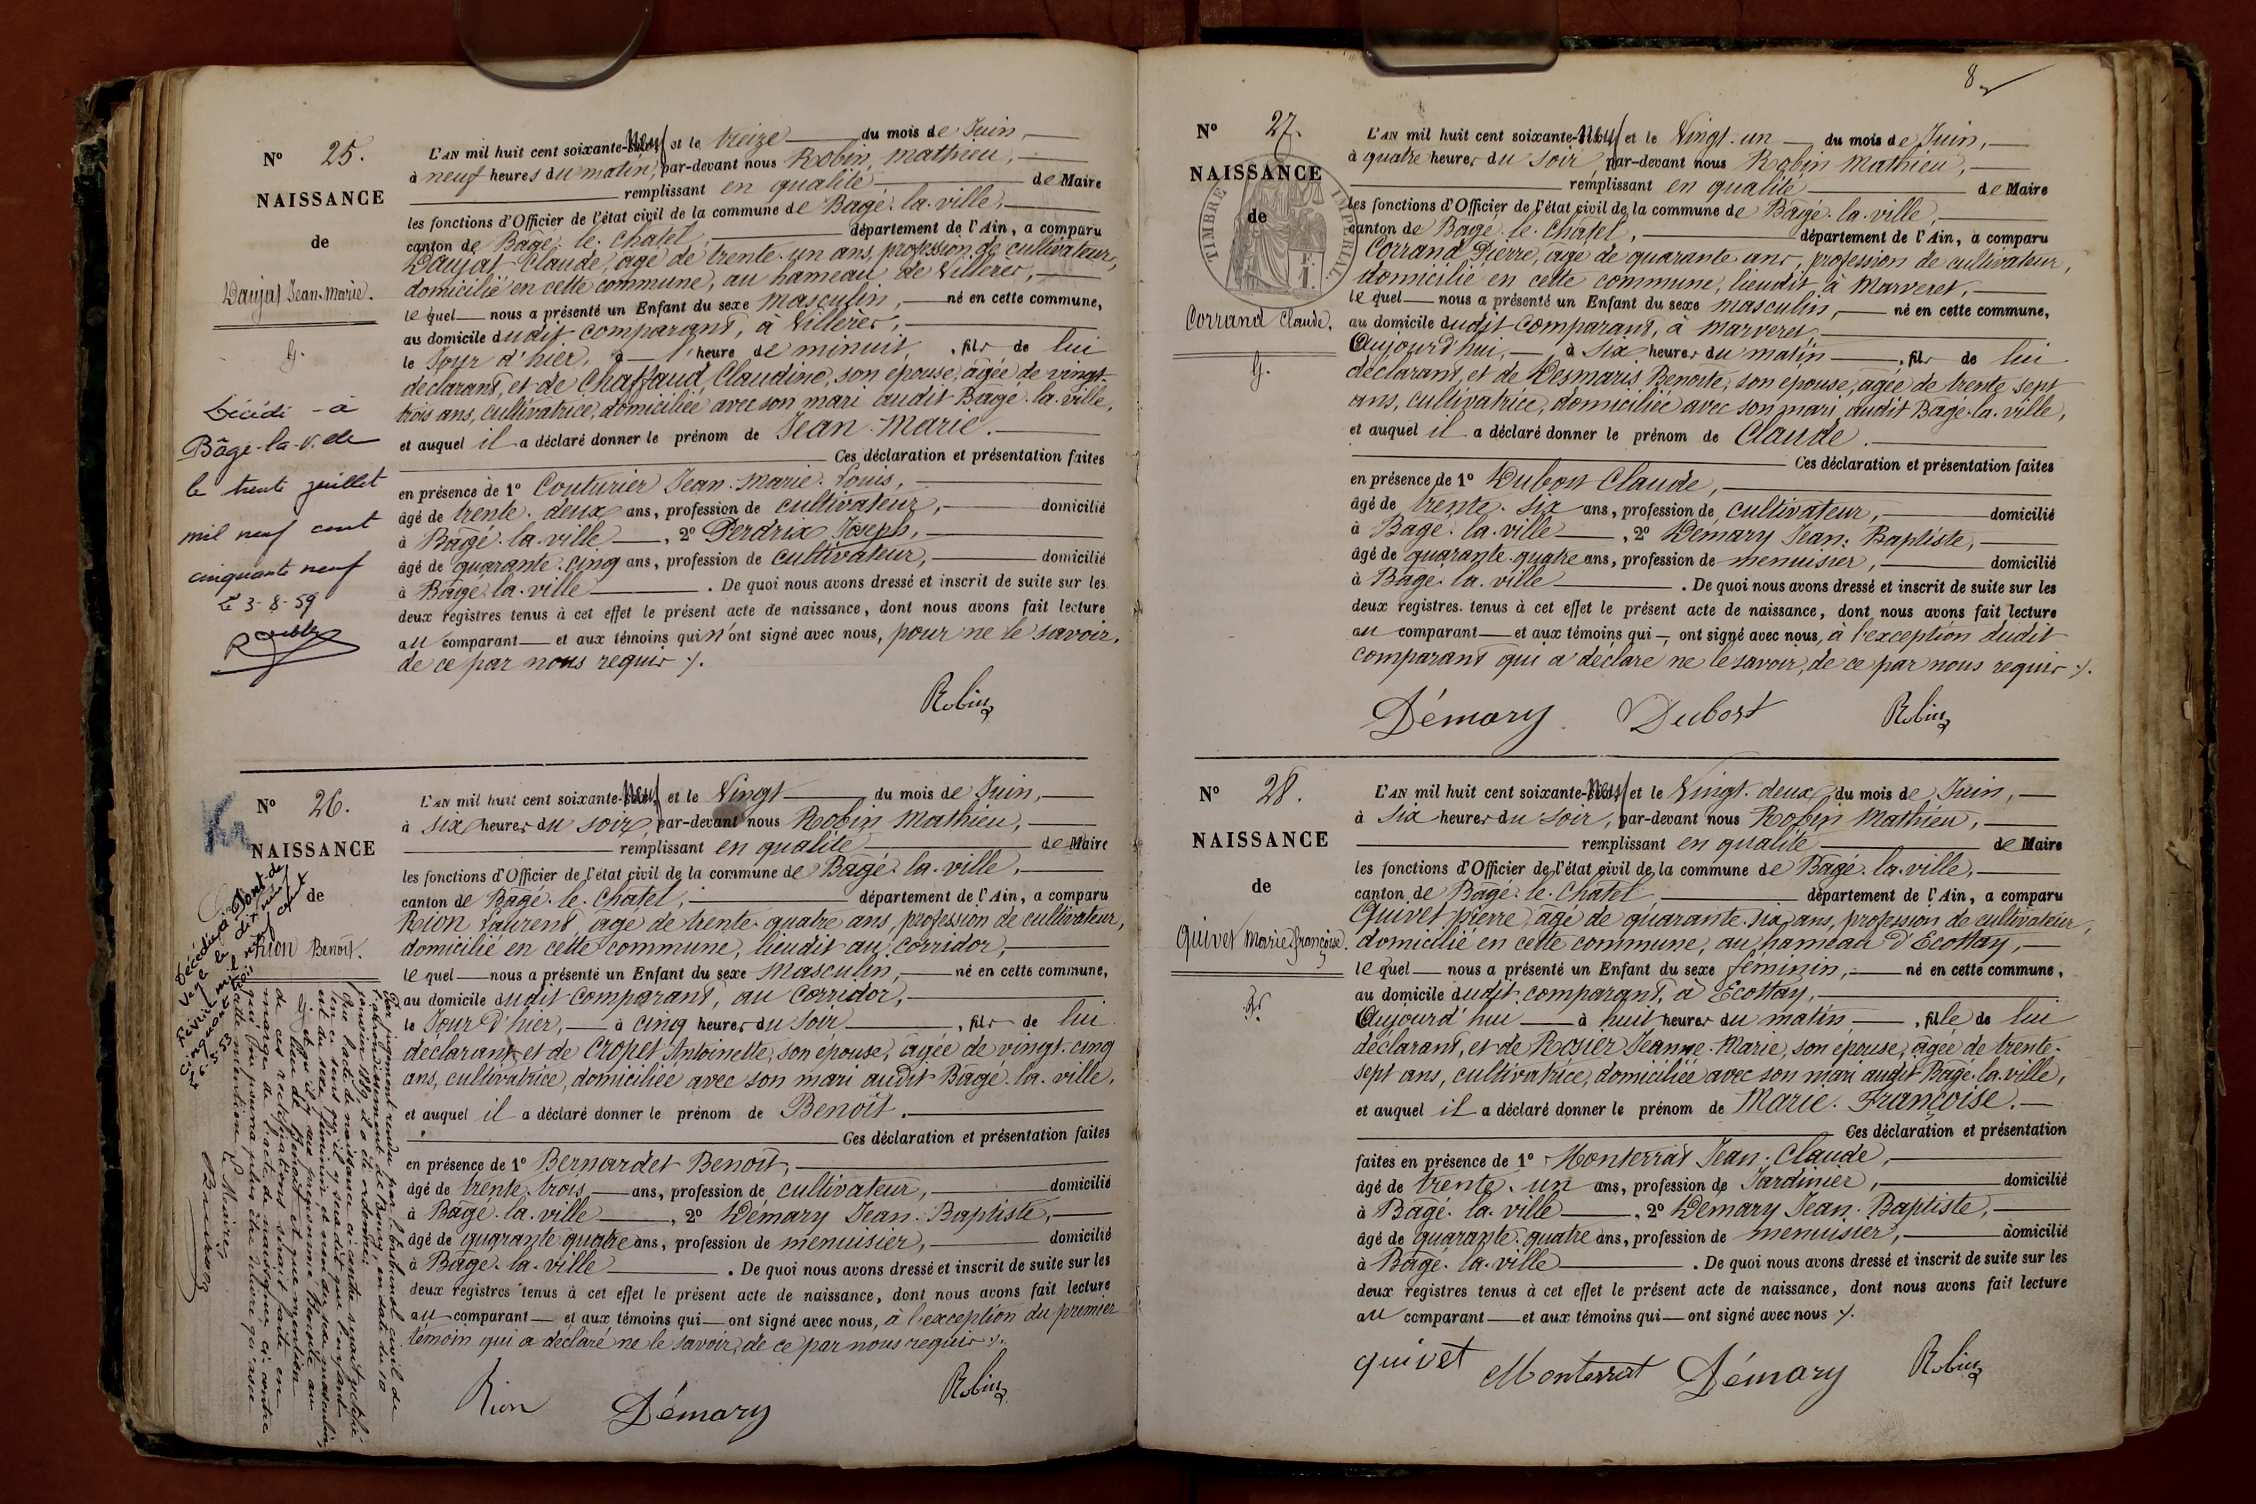 N° 25.
NAISSANCE
de
Daujat Jean-Marie.
G.
Décédé - à
Bâgé-la-Ville
le trente juillet
mil neuf cent
cinquante neuf
Le 3-8-59
L'AN mil huit cent soixante-Neuf et le treize du mois de Juin,
à neuf heures du matin, par-devant nous Robin, Mathieu,
remplissant en qualité de Maire
les fonctions d'Officier de l'état civil de la commune de Bâgé-la-ville,
canton de Bâgé-le-Chatel, département de l'Ain, a comparu
Daujat Claude, âgé de trente-un ans, profession de cultivateur,
domicilié en cette commune, au hameau de Villeres,
lequel nous a présenté un Enfant du sexe masculin, né en cette commune,
au domicile dudit comparant, à Villeres,
le Jour d'hier, à l'heure de minuit, fils de lui
déclarant, et de Chaffaud Claudine, son épouse, âgée de vingt-
trois ans, cultivatrice, domiciliée avec son mari audit Bâgé-la-ville,
et auquel il a déclaré donner le prénom de Jean-Marie.
Ces déclaration et présentation faites
en présence de 1° Couturier Jean-Marie-Louis,
âgé de trente-deux ans, profession de cultivateur, domicilié
à Bâgé-la-ville, 2° Perdrix Joseph,
âgé de quarante-cinq ans, profession de cultivateur, domicilié
à Bâgé-la-ville. De quoi nous avons dressé et inscrit de suite sur les
deux registres tenus à cet effet le présent acte de naissance, dont nous avons fait lecture
au comparant et aux témoins qui n'ont signé avec nous, pour ne le savoir,
de ce par nous requis ./.
Robin
N° 26.
NAISSANCE
de
Rion Benoît.
Décédé à Pont-de-
Veyle le dix neuf
Février mil neuf cent
cinquante trois
Par jugement rendu par le tribunal civil de
l'arrondissement de Bourg, en date du 10
janvier 1889, il a été ordonné:
Que l'acte de naissance ci-contre serait rectifié
en ce sens qu'il y serait dit que l'enfant
est du sexe féminin et non du sexe masculin,
et qu'il a eu pour prénom Benoite au
lieu de Benoît, et que mention
de ces rectifications serait faite en
marge de l'acte de naissance ci-contre
qui ne pourra plus être délivré qu'avec
cette mention.
Le Maire,
L'AN mil huit cent soixante-Neuf et le Vingt du mois de Juin,
à six heures du soir, par-devant nous Robin Mathieu,
remplissant en qualité de Maire
les fonctions d'Officier de l'état civil de la commune de Bâgé-la-ville,
canton de Bâgé-le-Chatel, département de l'Ain, a comparu
Rion Laurent, âgé de trente-quatre ans, profession de cultivateur,
domicilié en cette commune, lieudit au Corridor,
lequel nous a présenté un Enfant du sexe Masculin, né en cette commune,
au domicile dudit comparant, au Corridor,
le Jour d'hier, à cinq heures du soir, fils de lui
déclarant et de Cropet Antoinette, son épouse, âgée de vingt-cinq
ans, cultivatrice, domiciliée avec son mari audit Bâgé-la-ville,
et auquel il a déclaré donner le prénom de Benoît.
Ces déclaration et présentation faites
en présence de 1° Bernardet Benoît,
âgé de trente-trois ans, profession de cultivateur, domicilié
à Bâgé-la-ville, 2° Démary Jean-Baptiste,
âgé de quarante quatre ans, profession de menuisier, domicilié
à Bâgé-la-ville. De quoi nous avons dressé et inscrit de suite sur les
deux registres tenus à cet effet le présent acte de naissance, dont nous avons fait lecture
au comparant et aux témoins qui ont signé avec nous, à l'exception du premier
témoin qui a déclaré ne le savoir, de ce par nous requis ./.
Rion Démary Robin
8
N° 27.
NAISSANCE
de
TIMBRE IMPÉRIAL
Corrand Claude.
G.
L'AN mil huit cent soixante-Neuf et le Vingt-un du mois de Juin,
à quatre heures du soir, par-devant nous Robin Mathieu,
remplissant en qualité de Maire
les fonctions d'Officier de l'état civil de la commune de Bâgé-la-ville,
canton de Bâgé-le-Chatel, département de l'Ain, a comparu
Corrand Pierre, âgé de quarante ans, profession de cultivateur,
domicilié en cette commune, lieudit à Marveret,
lequel nous a présenté un Enfant du sexe masculin, né en cette commune,
au domicile dudit comparant, à Marveret
Aujourd'hui, à six heures du matin, fils de lui
déclarant, et de Desmaris Benoite, son épouse, âgée de trente sept
ans, cultivatrice, domiciliée avec son mari, audit Bâgé-la-ville,
et auquel il a déclaré donner le prénom de Claude.
Ces déclaration et présentation faites
en présence de 1° Dubost Claude,
âgé de trente-six ans, profession de cultivateur, domicilié
à Bâgé-la-ville, 2° Démary Jean-Baptiste,
âgé de quarante-quatre ans, profession de menuisier, domicilié
à Bâgé-la-ville. De quoi nous avons dressé et inscrit de suite sur les
deux registres tenus à cet effet le présent acte de naissance, dont nous avons fait lecture
au comparant et aux témoins qui ont signé avec nous, à l'exception dudit
comparant qui a déclaré ne le savoir, de ce par nous requis ./.
Démary Dubost Robin
N° 28.
NAISSANCE
de
Quivet Marie Françoise.
L'AN mil huit cent soixante-Neuf et le Vingt-deux du mois de Juin,
à six heures du soir, par-devant nous Robin Mathieu,
remplissant en qualité de Maire
les fonctions d'Officier de l'état civil de la commune de Bâgé-la-ville,
canton de Bâgé-le-Chatel, département de l'Ain, a comparu
Quivet Pierre, âgé de quarante-six ans, profession de cultivateur,
domicilié en cette commune, au hameau d'Ecottay,
lequel nous a présenté un Enfant du sexe féminin, né en cette commune,
au domicile dudit comparant, à Ecottay,
Aujourd'hui à huit heures du matin, fille de lui
déclarant, et de Rosier Jeanne-Marie, son épouse, âgée de trente-
sept ans, cultivatrice, domiciliée avec son mari audit Bâgé-la-ville,
et auquel il a déclaré donner le prénom de Marie-Françoise.
Ces déclaration et présentation
faites en présence de 1° Monterrat Jean-Claude,
âgé de trente-un ans, profession de Jardinier, domicilié
à Bâgé-la-ville, 2° Démary Jean-Baptiste,
âgé de quarante-quatre ans, profession de menuisier, domicilié
à Bâgé-la-ville. De quoi nous avons dressé et inscrit de suite sur les
deux registres tenus à cet effet le présent acte de naissance, dont nous avons fait lecture
au comparant et aux témoins qui ont signé avec nous ./.
quivet Monterrat Démary Robin